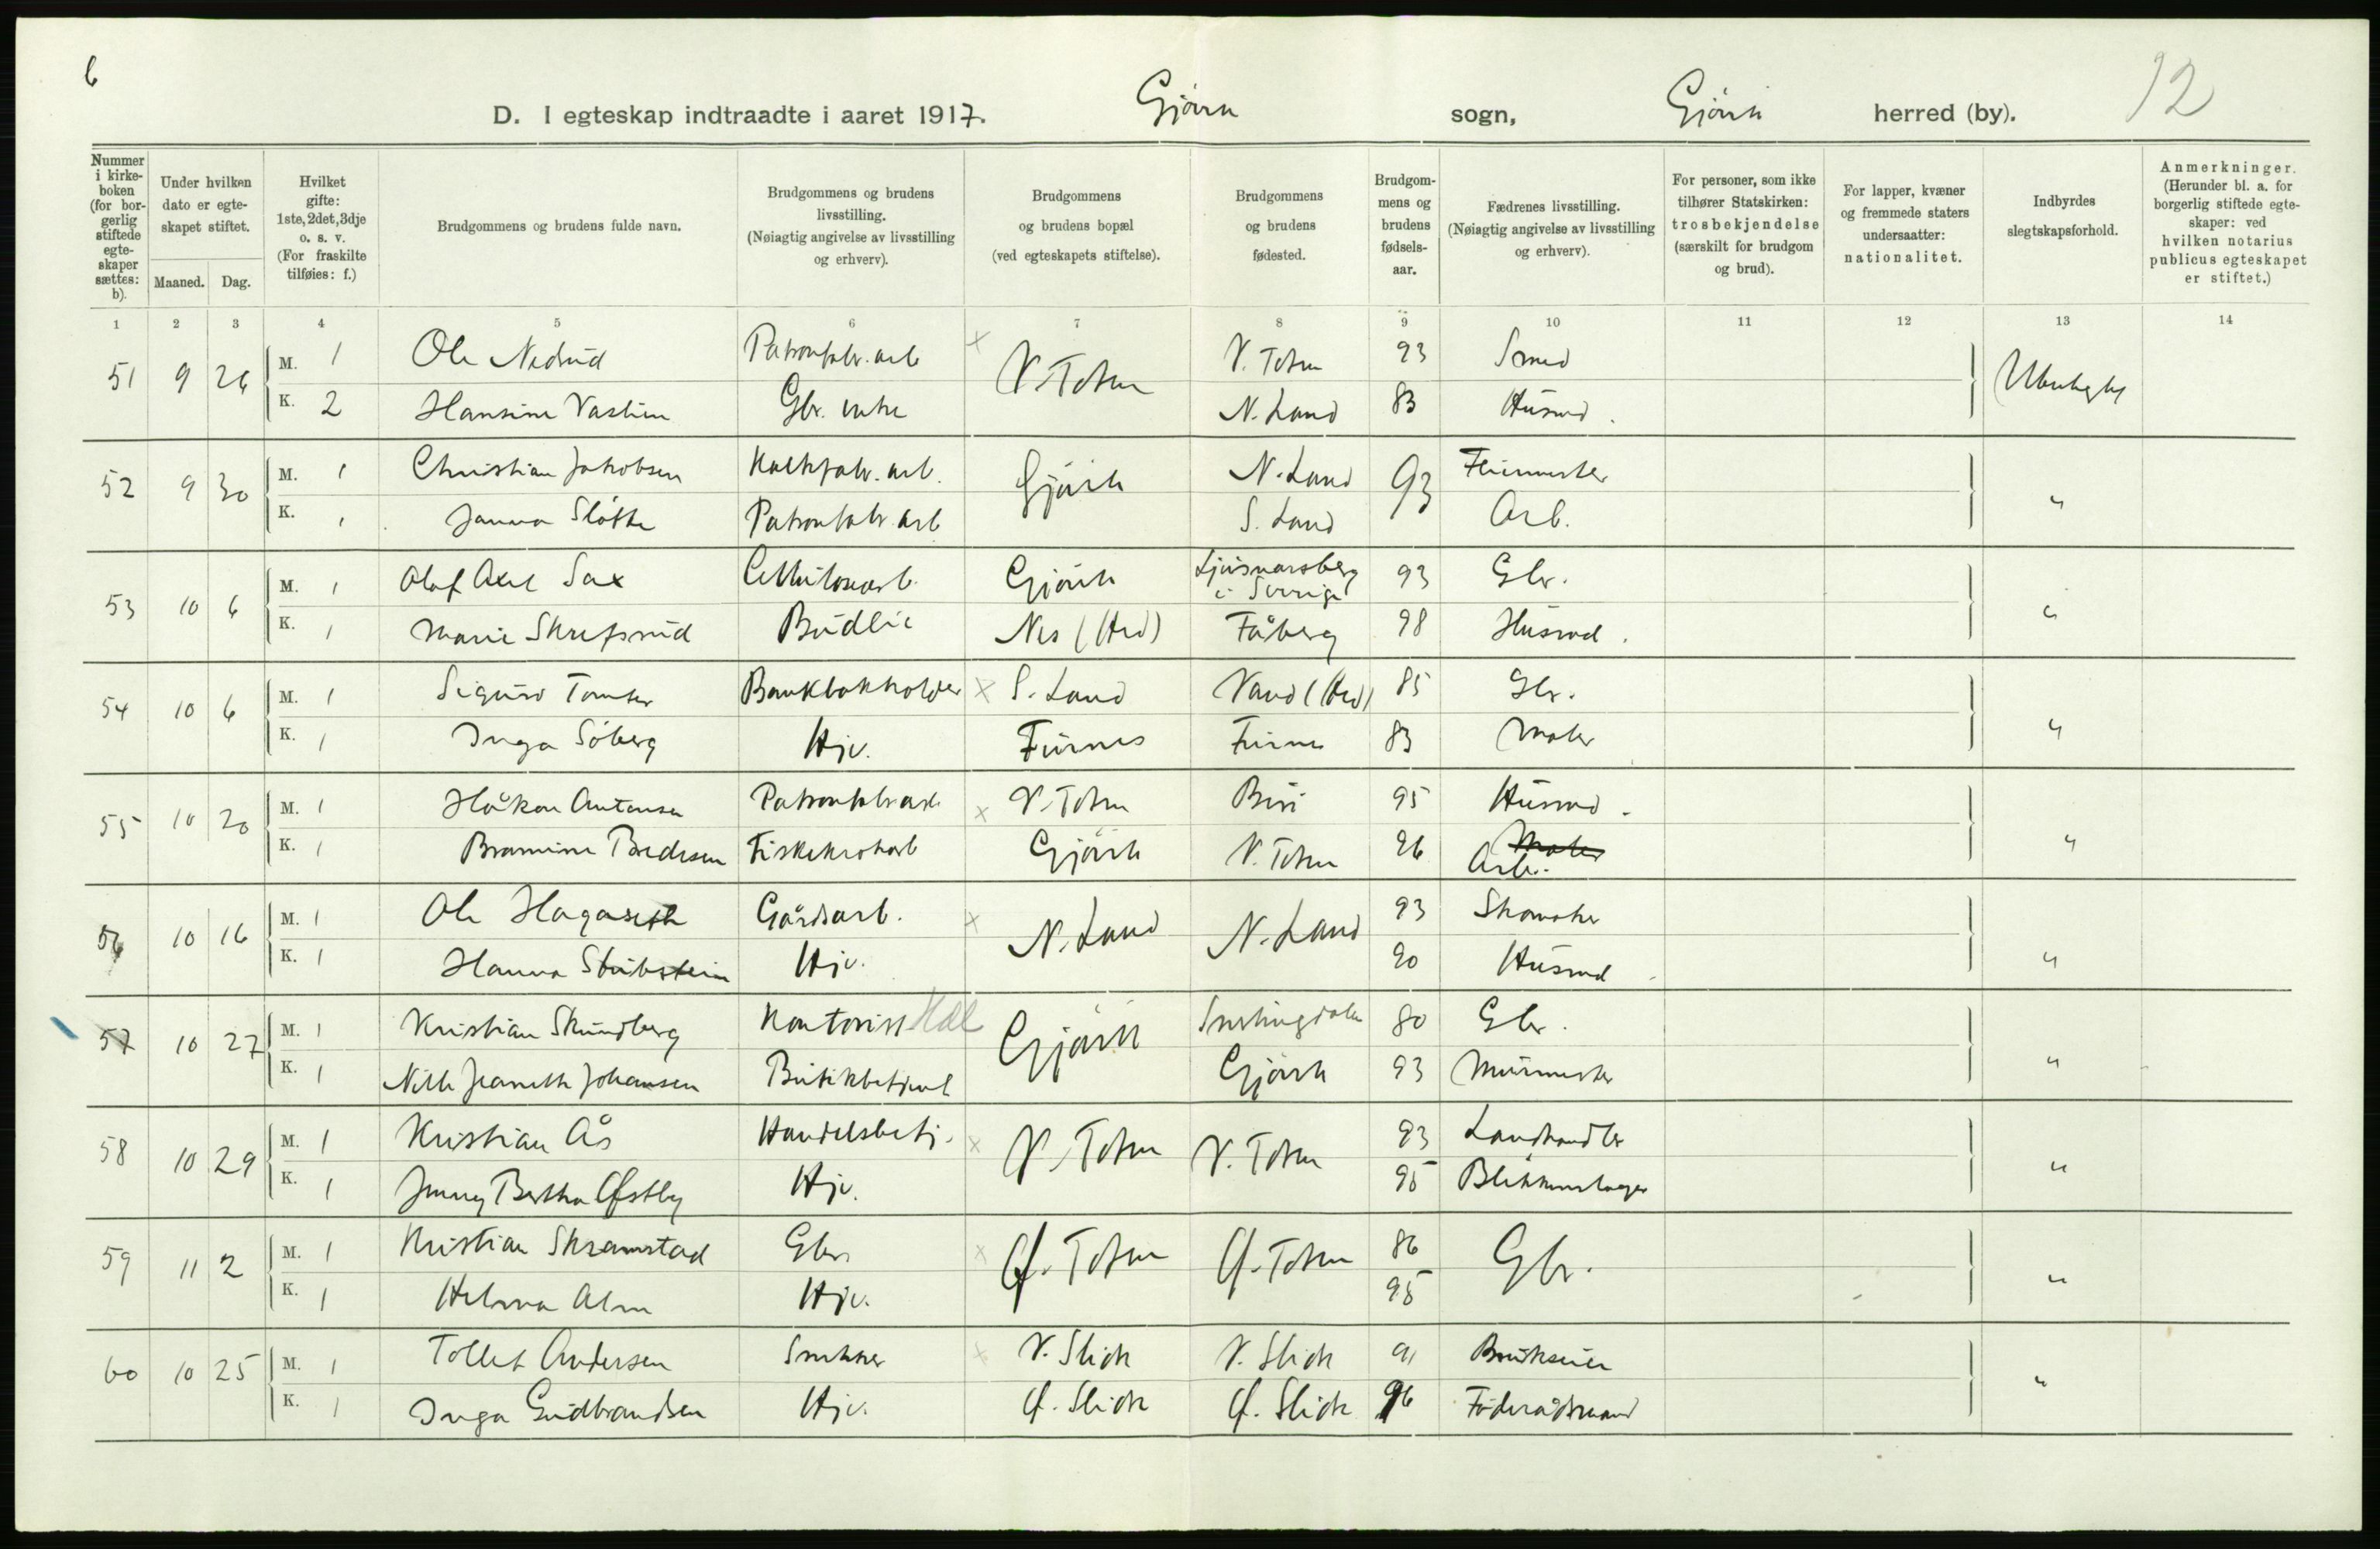 6
12
D. I egteskap indtraadte i aaret 1917. Gjövik sogn, Gjövik herred (by).
Nummer i kirkeboken (for borgerlig stiftede egteskaper sættes: b).
Under hvilken dato er egteskapet stiftet.
Maaned. Dag.
Hvilket gifte: 1ste, 2det, 3dje o. s. v. (For fraskilte tilføies: f.)
Brudgommens og brudens fulde navn.
Brudgommens og brudens livsstilling. (Nøiagtig angivelse av livsstilling og erhverv).
Brudgommens og brudens bopæl (ved egteskapets stiftelse).
Brudgommens og brudens fødested.
Brudgommens og brudens fødselsaar.
Fædrenes livsstilling. (Nøiagtig angivelse av livsstilling og erhverv).
For personer, som ikke tilhører Statskirken: trosbekjendelse (særskilt for brudgom og brud).
For lapper, kvæner og fremmede staters undersaatter: nationalitet.
Indbyrdes slegtskapsforhold.
Anmerkninger. (Herunder bl. a. for borgerlig stiftede egteskaper: ved hvilken notarius publicus egteskapet er stiftet.)
1 2 3 4 5 6 7 8 9 10 11 12 13 14
51 9 26 M. 1 Ole Nedrud Patronfabr. arb × V. Toten V. Toten 93 Smed Ubeslegtet
K. 2 Hansine Vastun Gbr. enke N. Land 83 Husmd.
52 9 30 M. 1 Christian Jakobsen Kalkfabr. arb. Gjövik N. Land 93 Arb. "
K. 1 Janna Slötte Patronfabr. arb S. Land
53 10 6 M. 1 Olaf Axel Sax Cellulosearb. Gjövik Ljusnarsberg i Sverige 93 Gbr. "
K. 1 Marie Skrefsrud Budeie Nes (Hed) Fåberg 98 Husmd.
54 10 6 M. 1 Sigurd Tomter Bankbokholder × S. Land Vand (Hed) 85 Gbr. "
K. 1 Inga Söberg Hjv. Furnes Furnes 83 Maler
55 10 20 M. 1 Håkon Antonsen Patronfabr arb × V. Toten Biri 95 Husmd. "
K. 1 Bramine Bredesen Fiskekrokarb Gjövik V. Toten 96 Maler Arb.
56 10 16 M. 1 Ole Hagaseth Gårdsarb. × N. Land N. Land 93 Skomaker "
K. 1 Hanna Stubstein Hjv. 90 Husmd
57 10 27 M. 1 Kristian Skundberg Kontorist Gjövik Snertingdalen 80 Gbr. "
K. 1 Nille Jeanette Johansen Butikbetjent Gjövik 93 Murmester
58 10 29 M. 1 Kristian Ås Handelsbetj. × V. Toten V. Toten 93 Landhandler "
K. 1 Jenny Bertha Østby Hjv. 95 Blikkenslager
59 11 2 M. 1 Kristian Skramstad Gbr. × Ø. Toten Ø. Toten 86 Gbr. "
K. 1 Helma Alm Hjv. 95
60 10 25 M. 1 Tollef Andersen Snekker × V. Slidre V. Slidre 91 Brukseier "
K. 1 Inga Gudbrandsen Hjv. Ø. Slidre Ø. Slidre 96 Föderådsmand